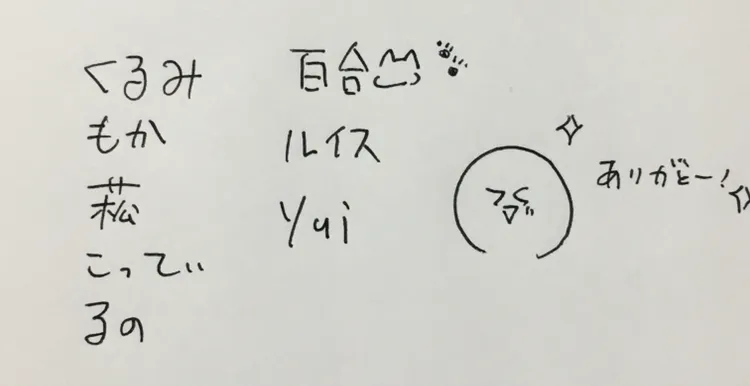 くるみ
もか
菘
こってぃ
るの
百合
ルイス
Yui
ありがとー!